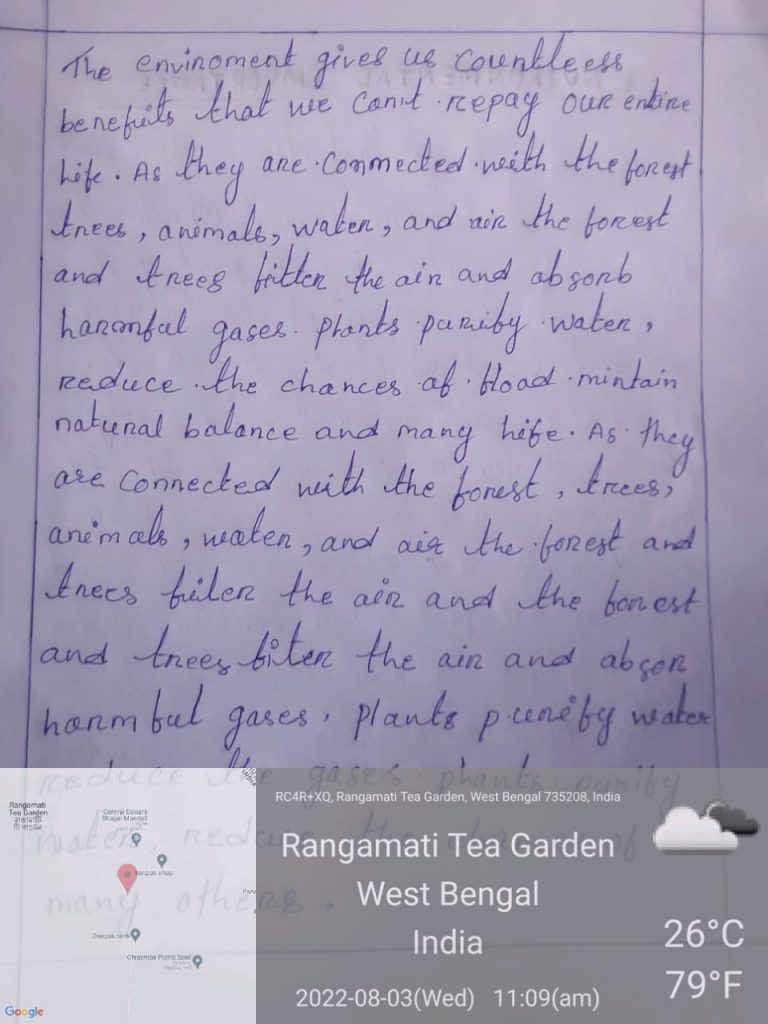 The envinoment gives us countleess
benefuits that we can't repay our entire
life. As they are connected with the forest
trees, animals, water, and air the forest
and trees filter the air and absorb
harmful gases. plants purify water,
reduce the chances of flood mintain
natural balance and many life. As they
are connected with the forest, trees,
animals, water, and air the forest and
trees filer the air and the forest
and trees filer the air and absor
harmful gases, plants purify water
reduce the gases plants purify
water, reduce the chances of
many others.
RC4R+XQ, Rangamati Tea Garden, West Bengal 735208, India
Rangamati Tea Garden
West Bengal
India
2022-08-03(Wed) 11:09(am)
26°C
79°F
Rangamati
Tea Garden
Central Dooars
Bhajan Mandali
horizon shop
Deepak tanti
Google